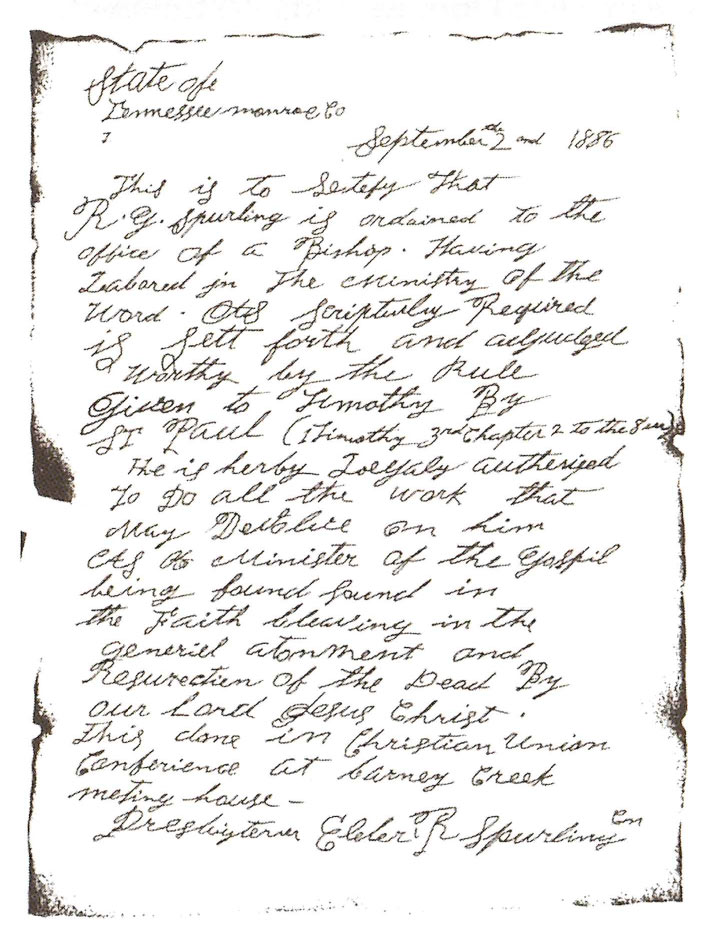 State of
Tennessee monroe Co
September the 2 and 1886
This is to Setefy That
R. G. Spurling is ordained to the
office of a Bishop. Having
Labored in The Ministry of the
Word. As Scriptuly Required
is Sett forth and adjudged
Worthy by the Rule
Given to Timothy By
ST Paul (I Timothy 3rd Chapter 2 to the 8
He is herby Loegaly autherised
To Do all the work that
May Devolve on him
As A Minister of the Gospil
being found Sound in
the Faith bleaving in the
generiel atonment and
Resurection of the Dead By
our Lord Jesus Christ.
This done in Christian Union
Conference at barney Creek
meting house –
Presbyterer Elder R Spurling